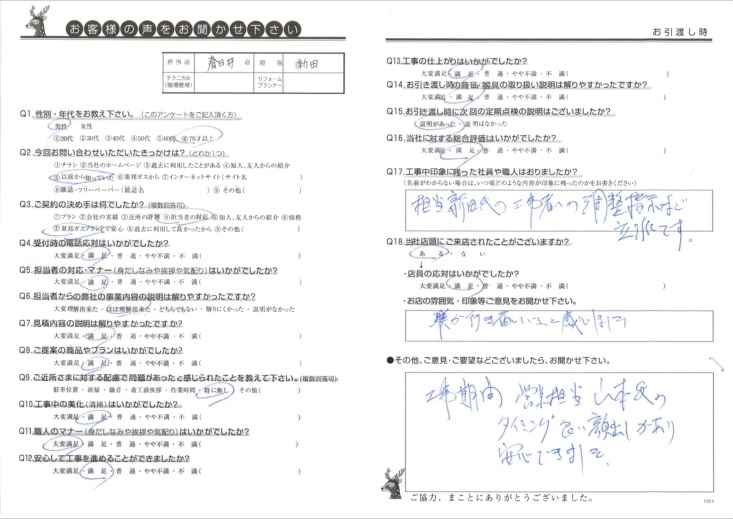 お客様の声をお聞かせ下さい
担当店 春日井 店 担当 新田
テクニカル(現場管理) リフォームプランナー
Q1.性別・年代をお教え下さい。(このアンケートをご記入頂く方)
男性 女性
①20代 ②30代 ③40代 ④50代 ⑤60代 ⑥70才以上
Q2.今回お問い合わせいただいたきっかけは?(どれか1つ)
①チラシ ②当社のホームページ ③過去に利用したことがある ④知人、友人からの紹介
⑤以前から知っていた ⑥東邦ガスから ⑦インターネットサイト(サイト名 )
⑧雑誌・フリーペーパー(雑誌名 ) ⑨その他( )
Q3.ご契約の決め手は何でしたか?(複数回答可)
①プラン ②会社の実績 ③近所の評判 ④担当者の対応 ⑤知人、友人からの紹介 ⑥価格
⑦東邦ガスブランドで安心 ⑧過去に利用して良かったから ⑨その他( )
Q4.受付時の電話応対はいかがでしたか?
大変満足・満 足・普 通・やや不満・不 満( )
Q5.担当者の対応・マナー(身だしなみや挨拶や気配り)はいかがでしたか?
大変満足・満 足・普 通・やや不満・不 満( )
Q6.担当者からの弊社の事業内容の説明は解りやすかったですか?
大変理解出来た・ほぼ理解出来た・どちらでもない・解りにくかった・説明がなかった
Q7.見積内容の説明は解りやすかったですか?
大変満足・満 足・普 通・やや不満・不 満( )
Q8.ご提案の商品やプランはいかがでしたか?
大変満足・満 足・普 通・やや不満・不 満( )
Q9.ご近所さまに対する配慮で問題があったと感じられたことを教えて下さい。(複数回答可)
駐車位置・清掃・騒音・着工前挨拶・作業時間・特に無し・その他( )
Q10.工事中の美化(清掃)はいかがでしたか?
大変満足・満 足・普 通・やや不満・不 満( )
Q11.職人のマナー(身だしなみや挨拶や気配り)はいかがでしたか?
大変満足・満 足・普 通・やや不満・不 満( )
Q12.安心して工事を進めることができましたか?
大変満足・満 足・普 通・やや不満・不 満( )
お引渡し時
Q13.工事の仕上がりはいかがでしたか?
大変満足・満 足・普 通・やや不満・不 満( )
Q14.お引き渡し時の商品・器具の取り扱い説明は解りやすかったですか?
大変満足・満 足・普 通・やや不満・不 満( )
Q15.お引き渡し時に次回の定期点検の説明はございましたか?
説明があった・説明はなかった
Q16.当社に対する総合評価はいかがでしたか?
大変満足・満 足・普 通・やや不満・不 満( )
Q17.工事中印象に残った社員や職人はおりましたか?
(名前がわからない場合は、いつ頃どのような内容が印象に残ったのかをお書きください)
担当新田氏の工事者への調整指示など
立派です。
Q18.当社店頭にご来店されたことがございますか?
ある・ない
・店員の応対はいかがでしたか?
大変満足・満 足・普 通・やや不満・不 満( )
・お店の雰囲気・印象等ご意見をお聞かせ下さい。
が行き届いていると感じました
●その他、ご意見・ご要望などございましたら、お聞かせ下さい。
工事期間 営業担当 山本氏の
タイミング良い顔出しがあり
安心できました。
ご協力、まことにありがとうございました。